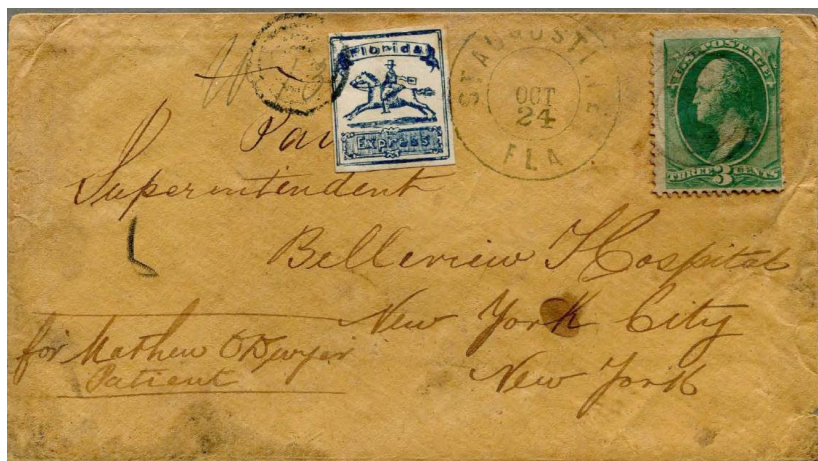 Florida
Express
ST AUGUSTINE
OCT
24
FLA
U.S. POSTAGE
THREE 3 CENTS
Superintendent
Belleview Hospital
New York City
New York
for Mathew O Dwyer
Patient